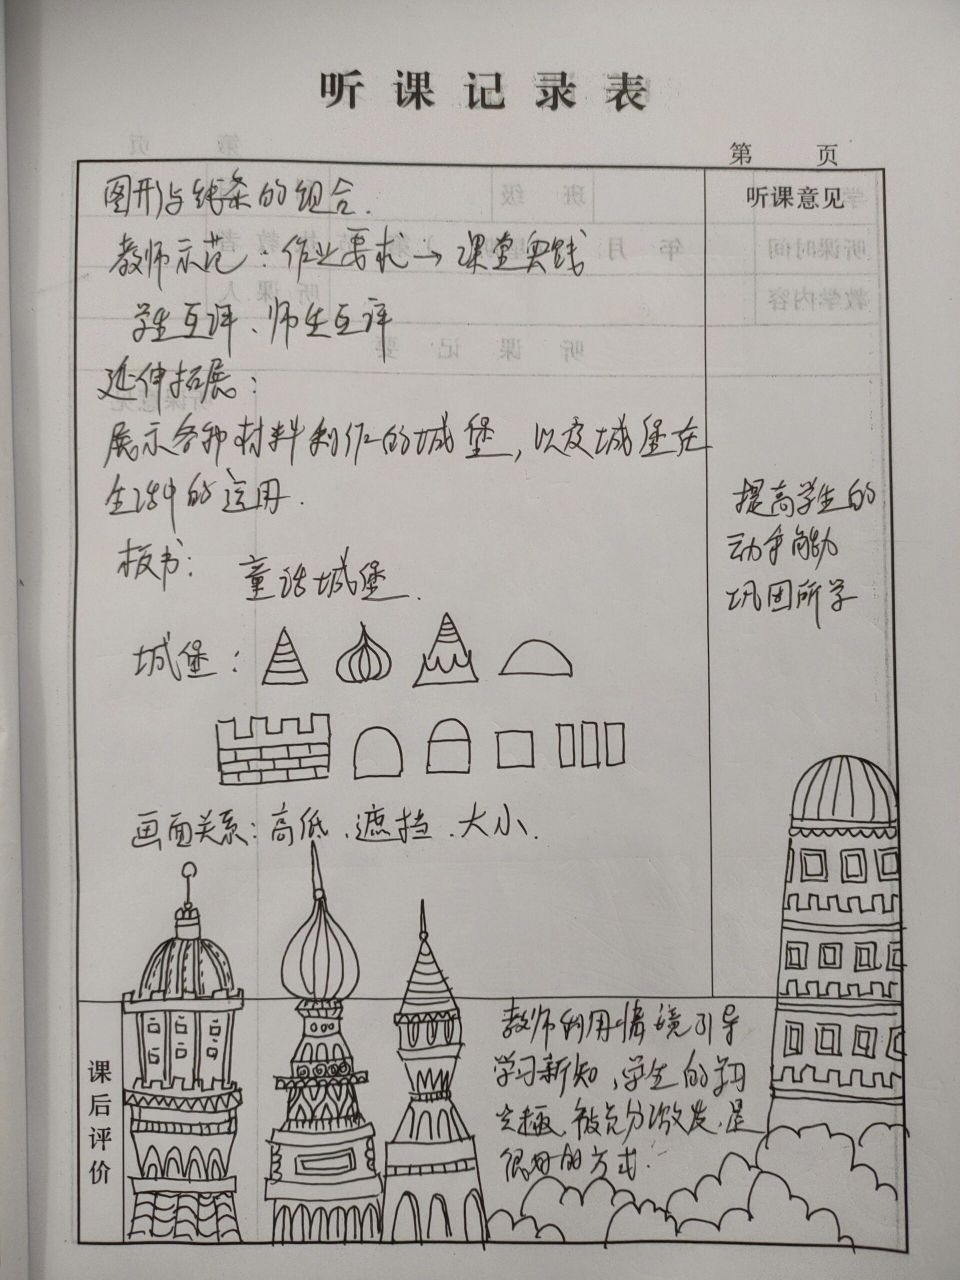 听课记录表
第 页
图形与线条的组合.
听课意见
教师示范：作业要求→课堂实践
学生互评、师生互评
延伸拓展：
展示各种材料制作的城堡，以及城堡在
生活中的运用.
提高学生的
动手能力
巩固所学
板书：
童话城堡.
城堡：
画面关系：高低、遮挡、大小.
课后评价
教师利用情境引导
学习新知，学生的学习
兴趣被充分激发，是
很好的方式.